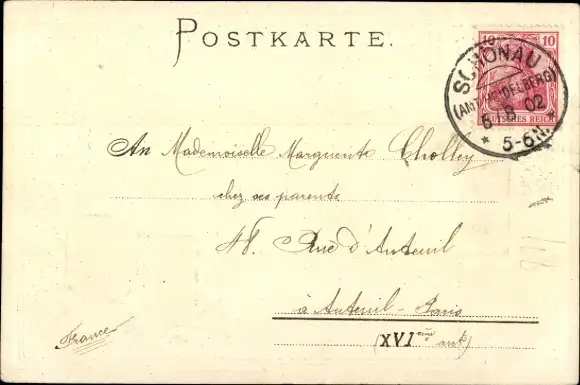 POSTKARTE.
10 10
DEUTSCHES REICH
SCHÖNAU
(AMT HEIDELBERG)
8 02
5-6N.
An Mademoiselle Marguerite Cholley
chez ses parents
48. Rue d'Auteuil
à Auteuil - Paris
(XVI ème arrt)
France